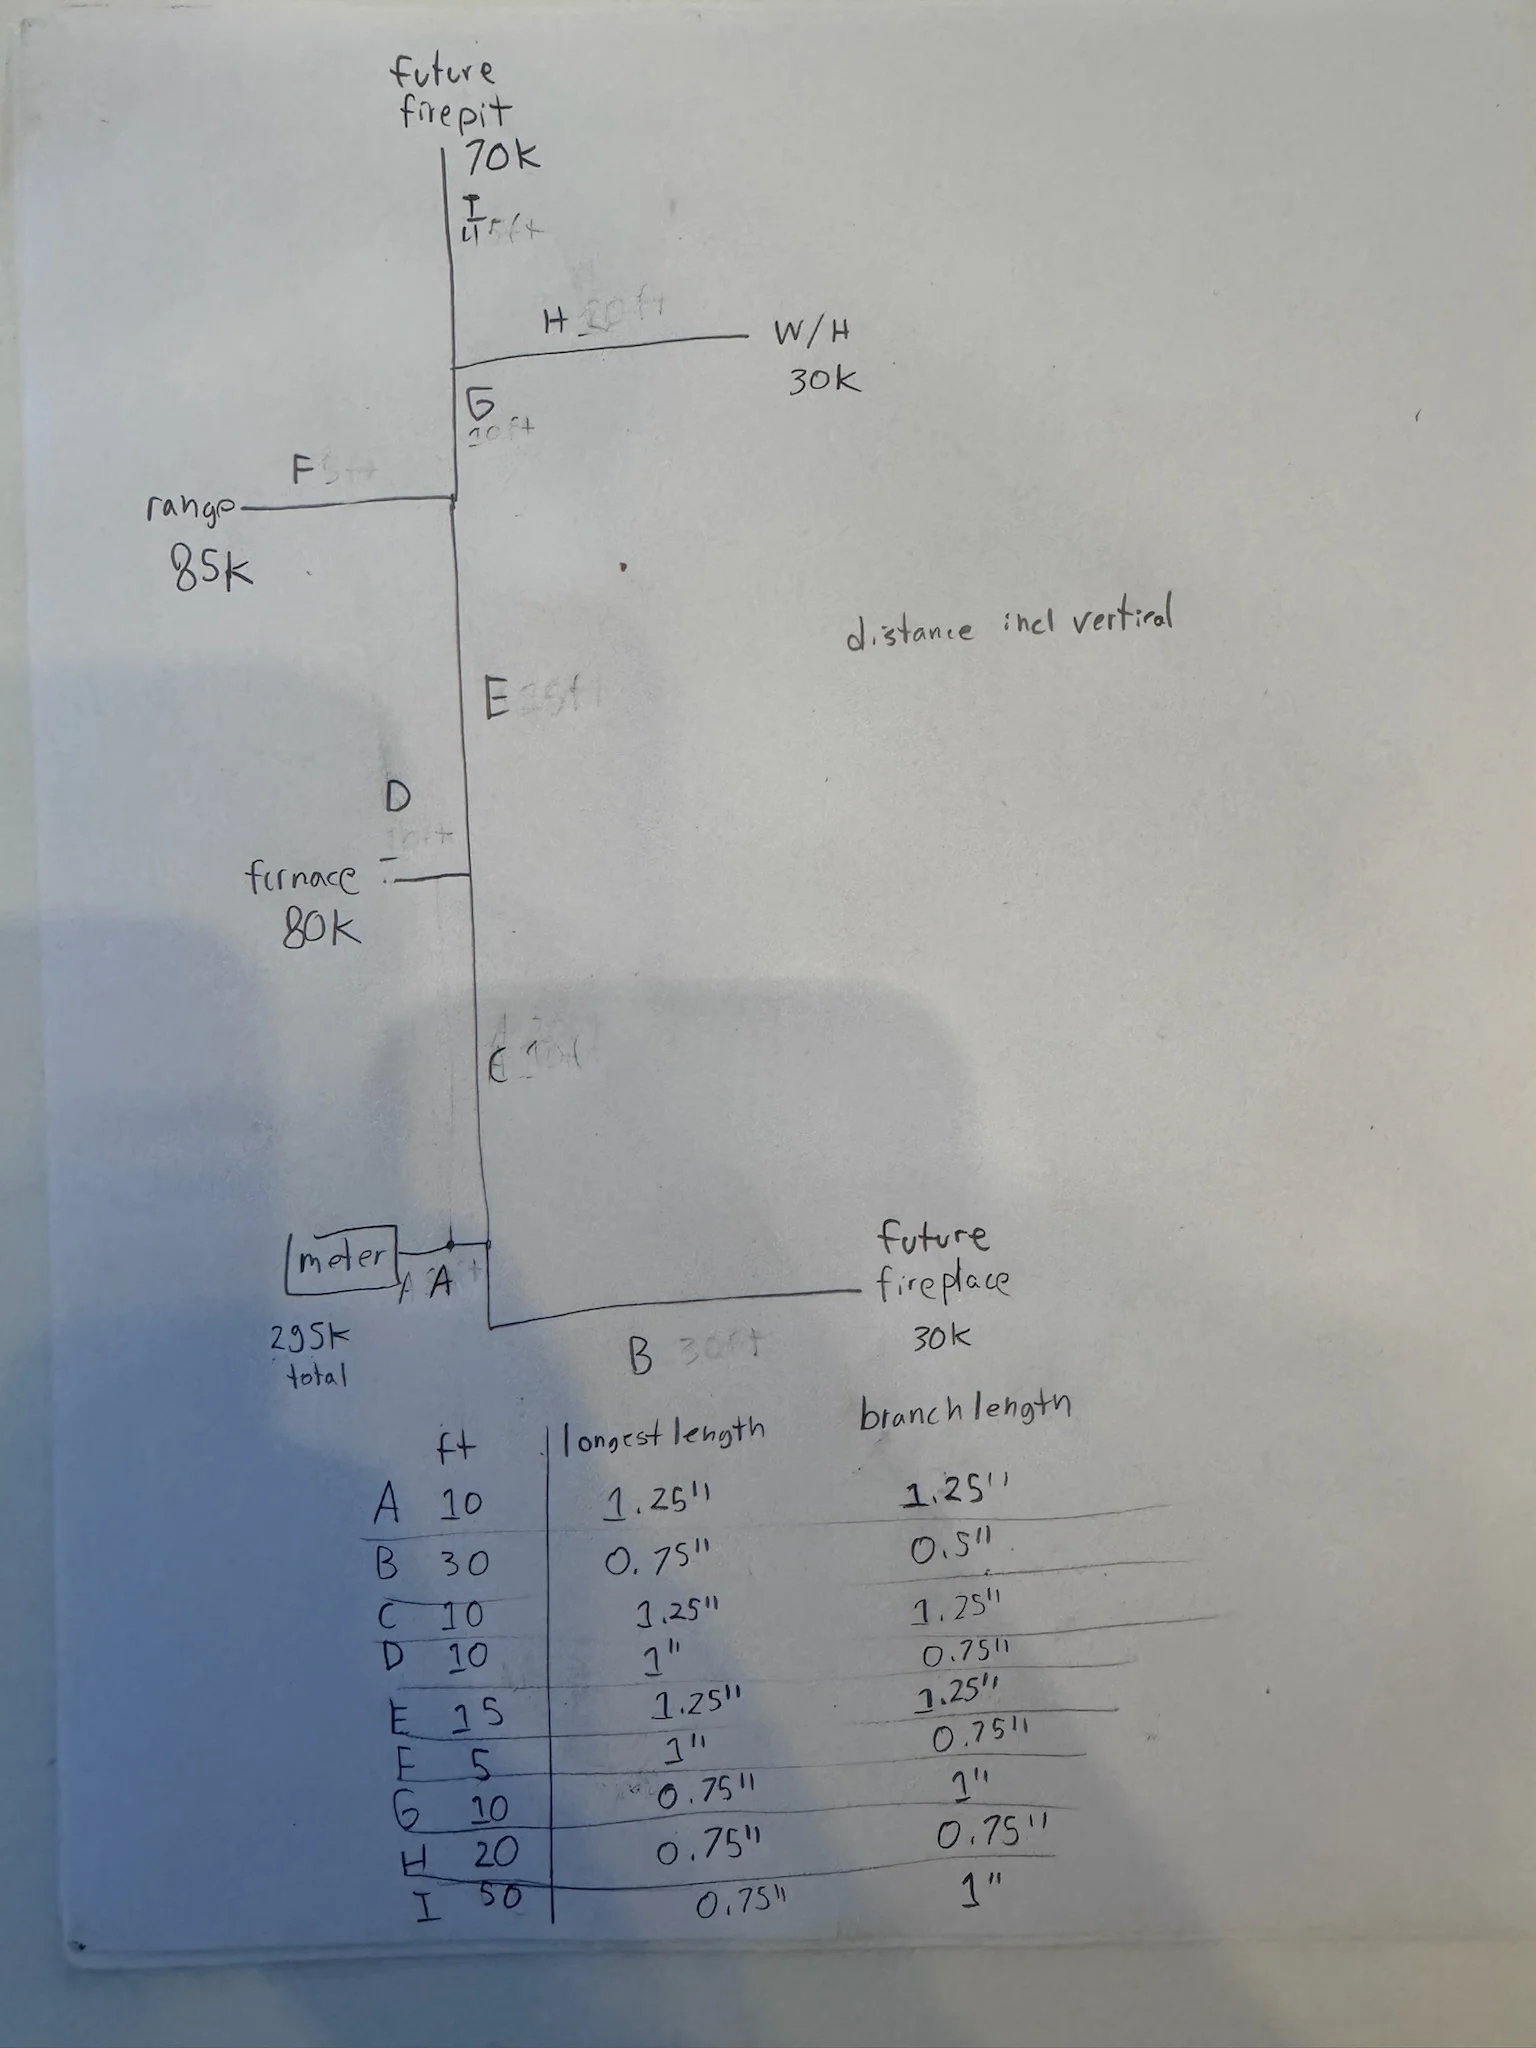 future
firepit
70K
I
H 20ft
W/H
30K
G
10ft
F 5ft
range
85K
distance incl vertical
E 15ft
D
10ft
furnace
80K
C 10ft
meter
A
future
fireplace
30K
B 30ft
295K
total
ft longest length branch length
A 10 1.25" 1.25"
B 30 0.75" 0.5"
C 10 1.25" 1.25"
D 10 1" 0.75"
E 15 1.25" 1.25"
F 5 1" 0.75"
G 10 0.75" 1"
H 20 0.75" 0.75"
I 50 0.75" 1"